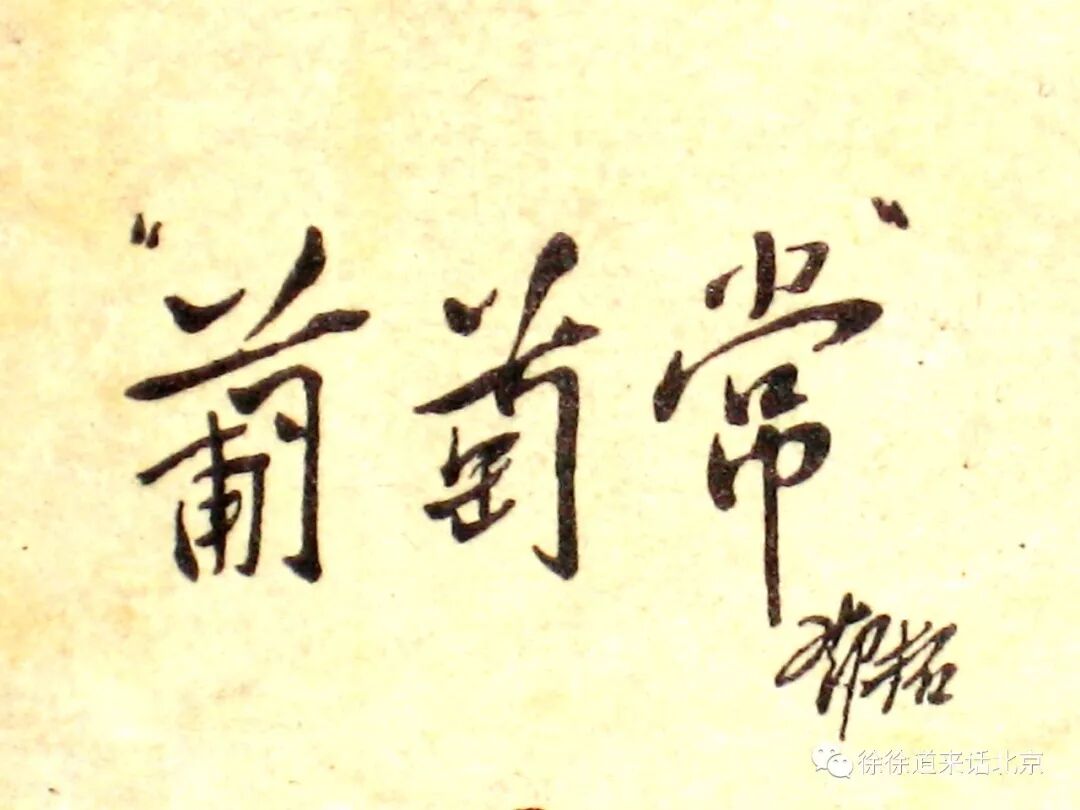 “葡萄常”
邓拓
徐徐道来话北京